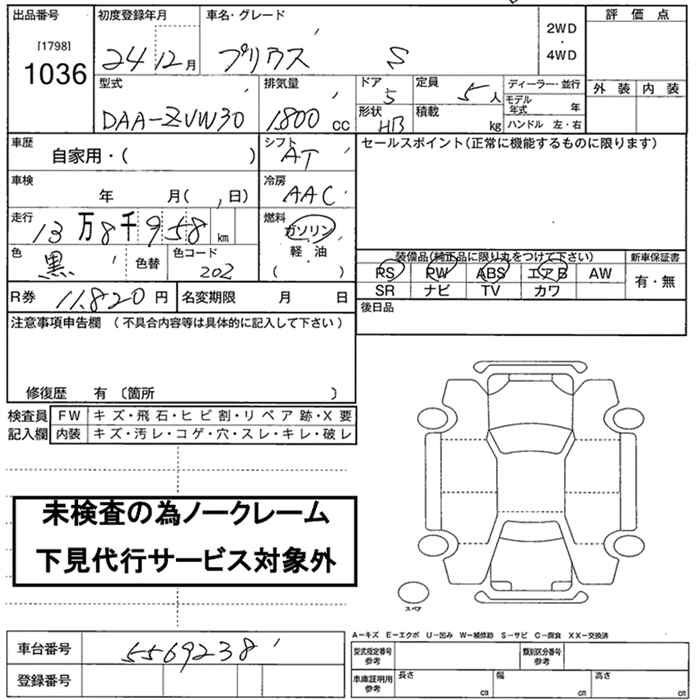 出品番号 初度登録年月 車名・グレード 評価点
[1798]
1036
24 12月 プリウス S
2WD
・
4WD
外装 内装
型式 排気量 ドア 定員 ディーラー・並行
DAA-ZVW30 1,800 cc 5 5人
形状 積載 モデル年式 年
HB kg ハンドル 左・右
車歴 シフト セールスポイント(正常に機能するものに限ります)
自家用・( ) AT
車検 冷房
年 月( , 日) AAC
走行 燃料
13万8千958km ガソリン
軽・油
( )
色 色替 色コード
黒 202
装備品(純正品に限り丸をつけて下さい) 新車保証書
PS PW ABS エアB AW 有・無
SR ナビ TV カワ
R券 11,820円 名変期限 月 日 後日品
注意事項申告欄 (不具合内容等は具体的に記入して下さい)
修復歴 有 〔箇所 〕
検査員 FW キズ・飛石・ヒビ割・リペア跡・X要
記入欄 内装 キズ・汚レ・コゲ・穴・スレ・キレ・破レ
未検査の為ノークレーム
下見代行サービス対象外
スペア
A-キズ E-エクボ U-凹み W-補修跡 S-サビ C-腐食 XX-交換済
車台番号 5569238
型式指定番号 参考 類別区分番号 参考
登録番号
車庫証明用 参考 長さ cm 幅 cm 高さ cm